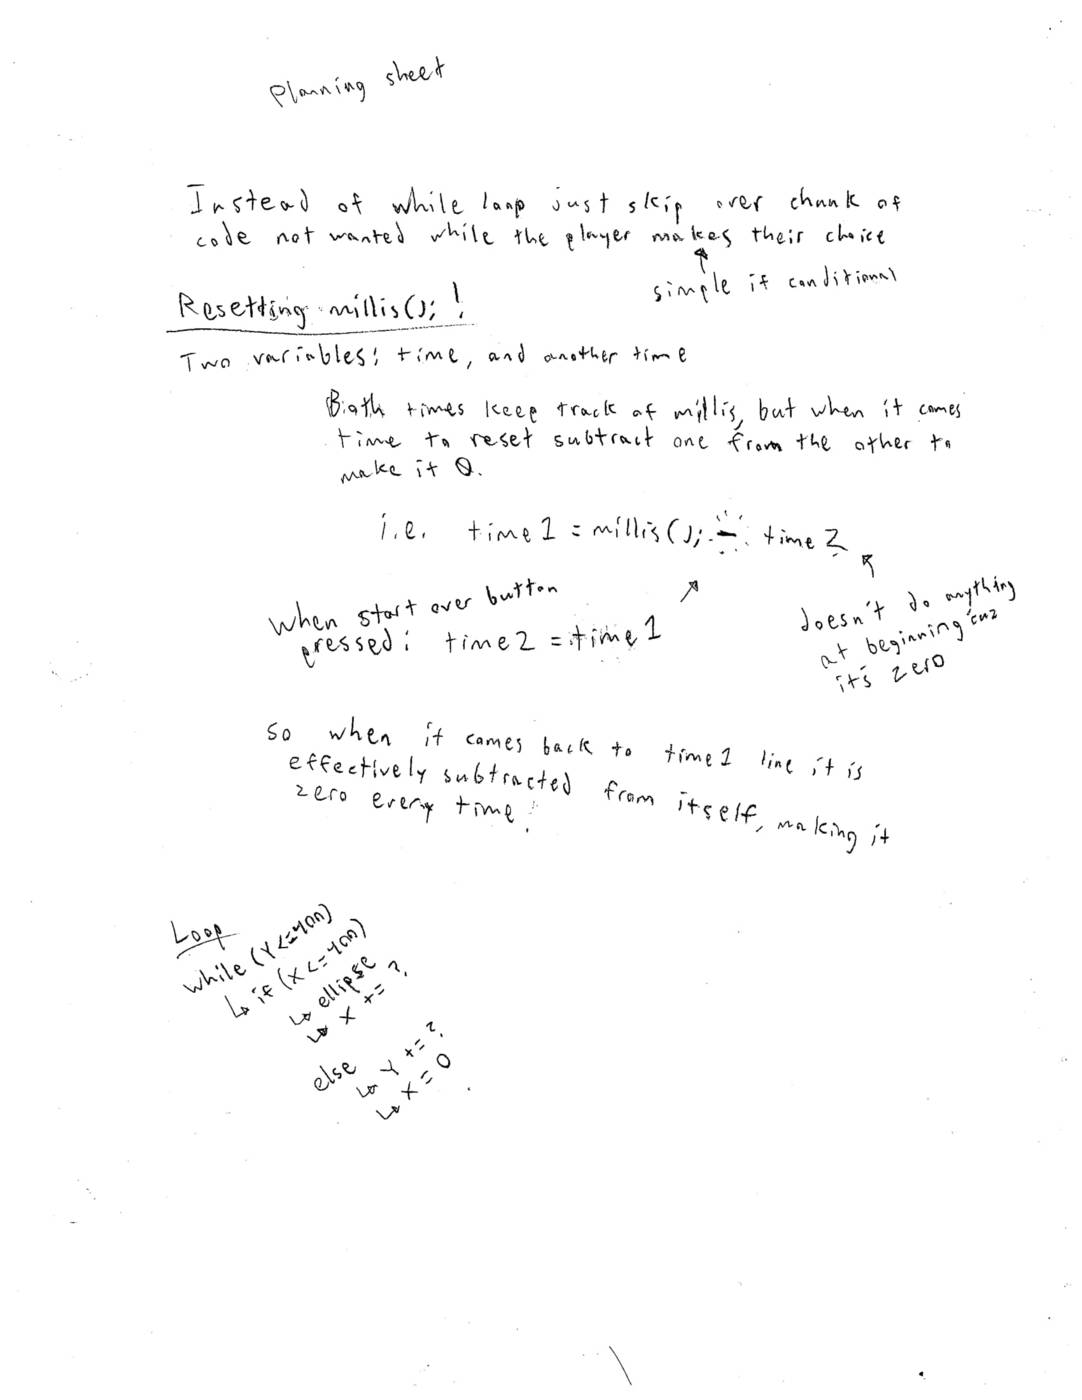 Planning sheet
Instead of while loop just skip over chunk of
code not wanted while the player makes their choice
simple if conditional
Resetting millis(); !
Two variables: time, and another time
Both times keep track of millis, but when it comes
time to reset subtract one from the other to
make it 0.
i.e. time1 = millis(); - time2
doesn't do anything
at beginning cuz
it's zero
When start over button
pressed: time2 = time1
So when it comes back to time1 line it is
effectively subtracted from itself, making it
zero every time!
Loop
while (Y<=400)
↳ if (X<=400)
↳ ellipse
↳ X += ?
else
↳ Y += ?
↳ X = 0